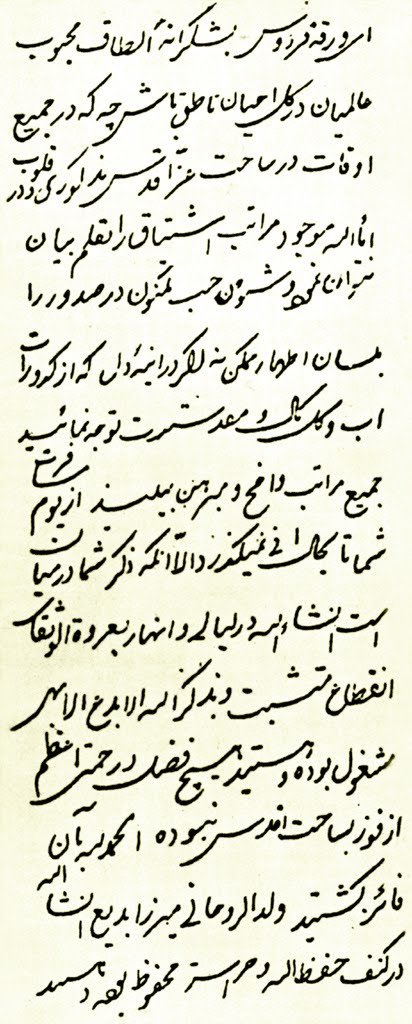 ای ورقهٔ فردوس بشکرانهٔ الطاف محبوب
عالمیان در کل احیان ناطق باش چه که در جمیع
اوقات در ساحت عز اقدس مذکوری و در قلوب
اماء الله موجود مراتب اشتیاق را بقلم بیان
نتوان نمود و شئون حب مکنون در صدور را
بلسان اظهار ممکن نه لکن در آینهٔ دل که از کدورات
آب و گل پاک و مقدس است توجه نمائید
جمیع مراتب واضح و مبرهن ببینید از یوم فرقت
شما تا بحال آنی نمیگذرد الا آنکه ذکر شما در میان
است انشاء الله در لیالی و انهار بعروة الوثقای
انقطاع متشبث و بذکر الله الابدع الابهی
مشغول بوده و هستید هیچ فضل و رحمتی اعظم
از فوز بساحت اقدس نبوده الحمد لله بآن
فائز گشتید ولد الروحانی میرزا بدیع انشاء الله
در کنف حفظ الله و حراسته محفوظ بوده باشند